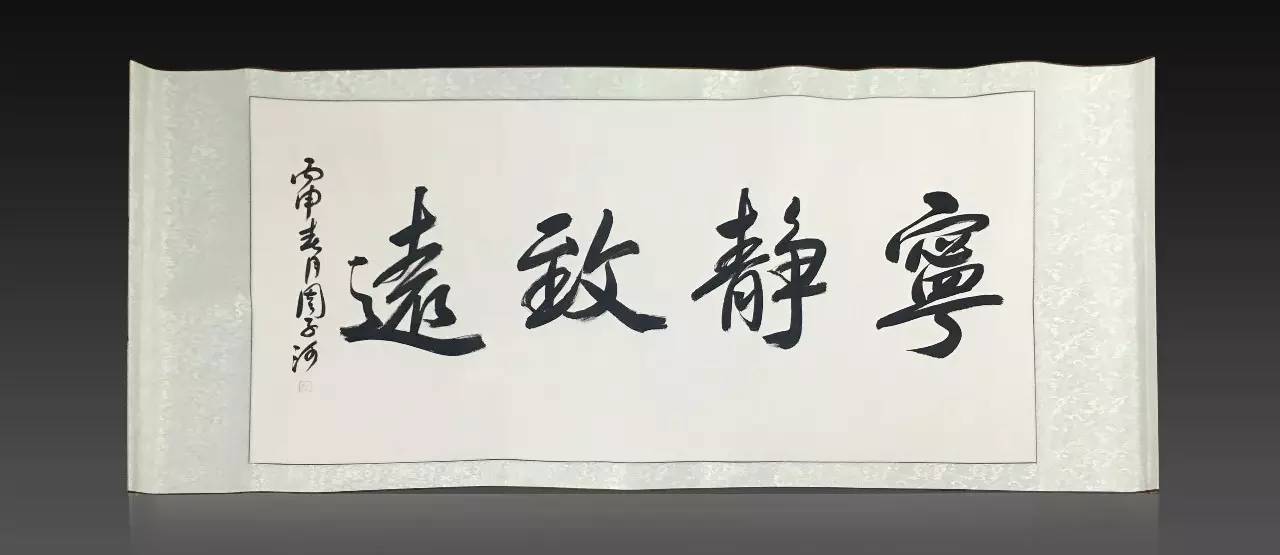 寧靜致遠
丙申春月閻子河